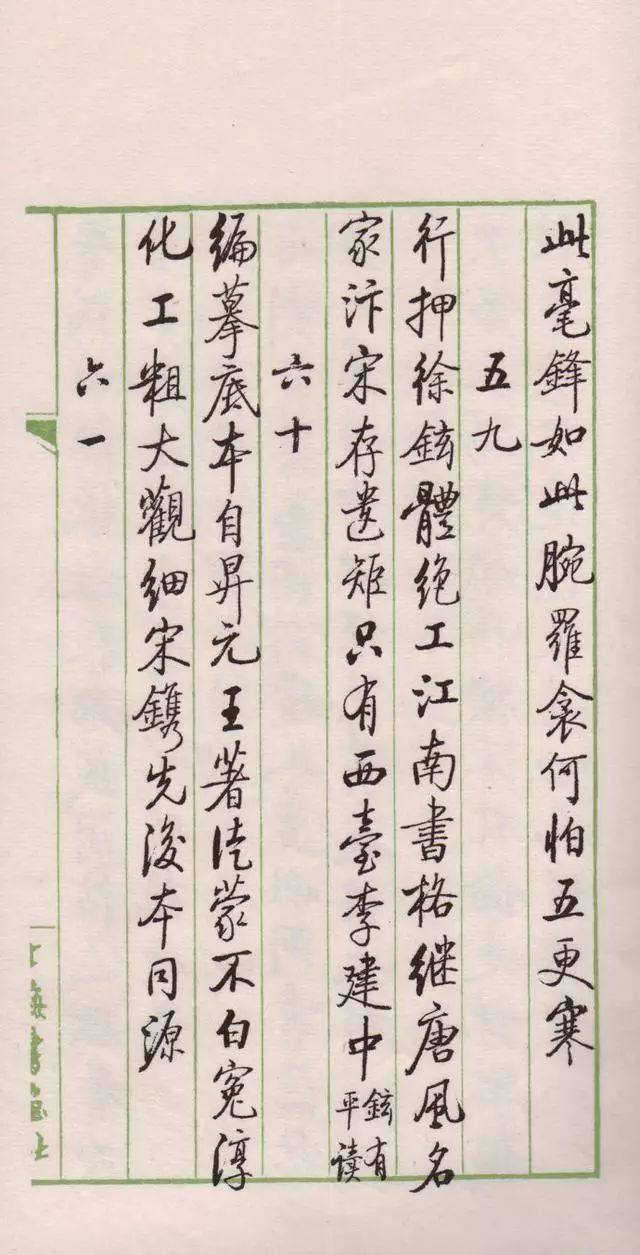 此毫鋒如此腕羅衾何怕五更寒
五九
行押徐鉉體絶工江南書格继唐風名
家汴宋存遺矩只有西臺李建中鉉有平读
六十
編摹底本自昇元王著徒蒙不白冤淳
化工粗大觀细宋鐫先後本同源
六一
上海書画社